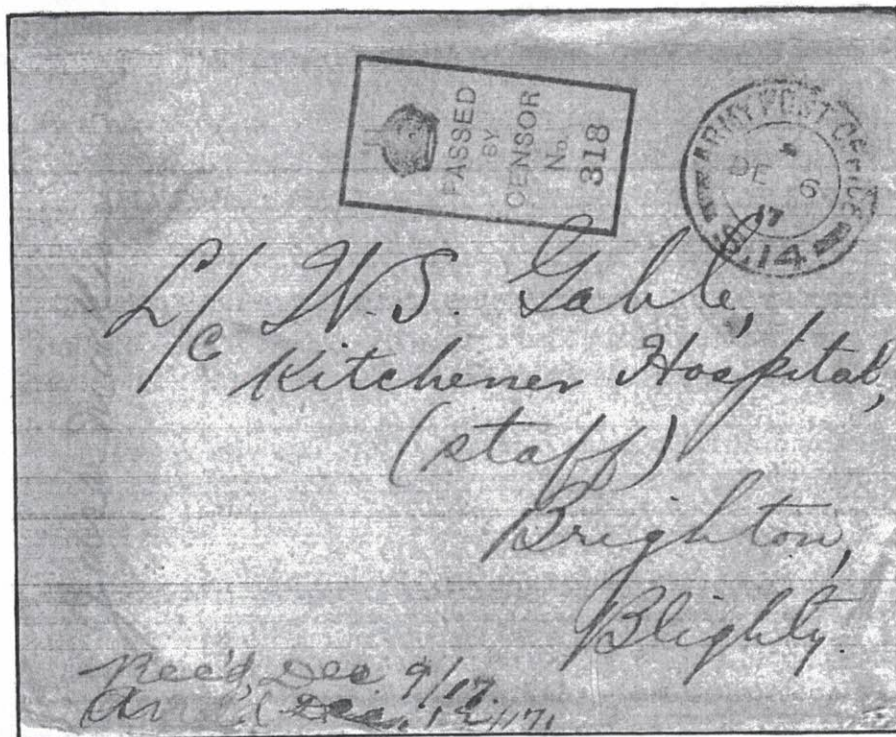 PASSED
BY
CENSOR
No.
318
ARMY POST OFFICE
DE 6
17
S.14
L/C W.S. Gable,
Kitchener Hospital,
(staff)
Brighton,
Blighty.
Rec'd, Dec 9/17
Dec.